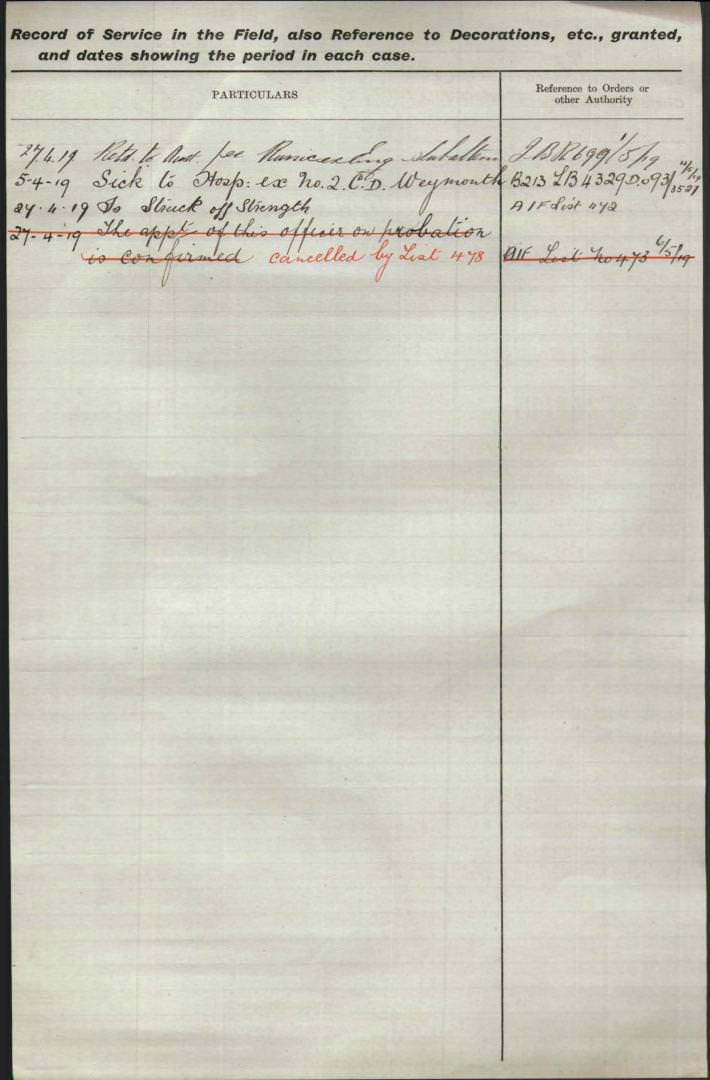 Record of Service in the Field, also Reference to Decorations, etc., granted,
and dates showing the period in each case.
PARTICULARS
Reference to Orders or
other Authority
27.4.19 Retd. to Aust. per Runic
5-4-19 Sick to Hosp: ex No. 2. C.D. Weymouth B213 LB 4329
27.4.19 Is Struck off Strength A I F List 472
27-4-19 The appt. of this officer on probation
is confirmed cancelled by List 478 AIF List No 473 6/5/19